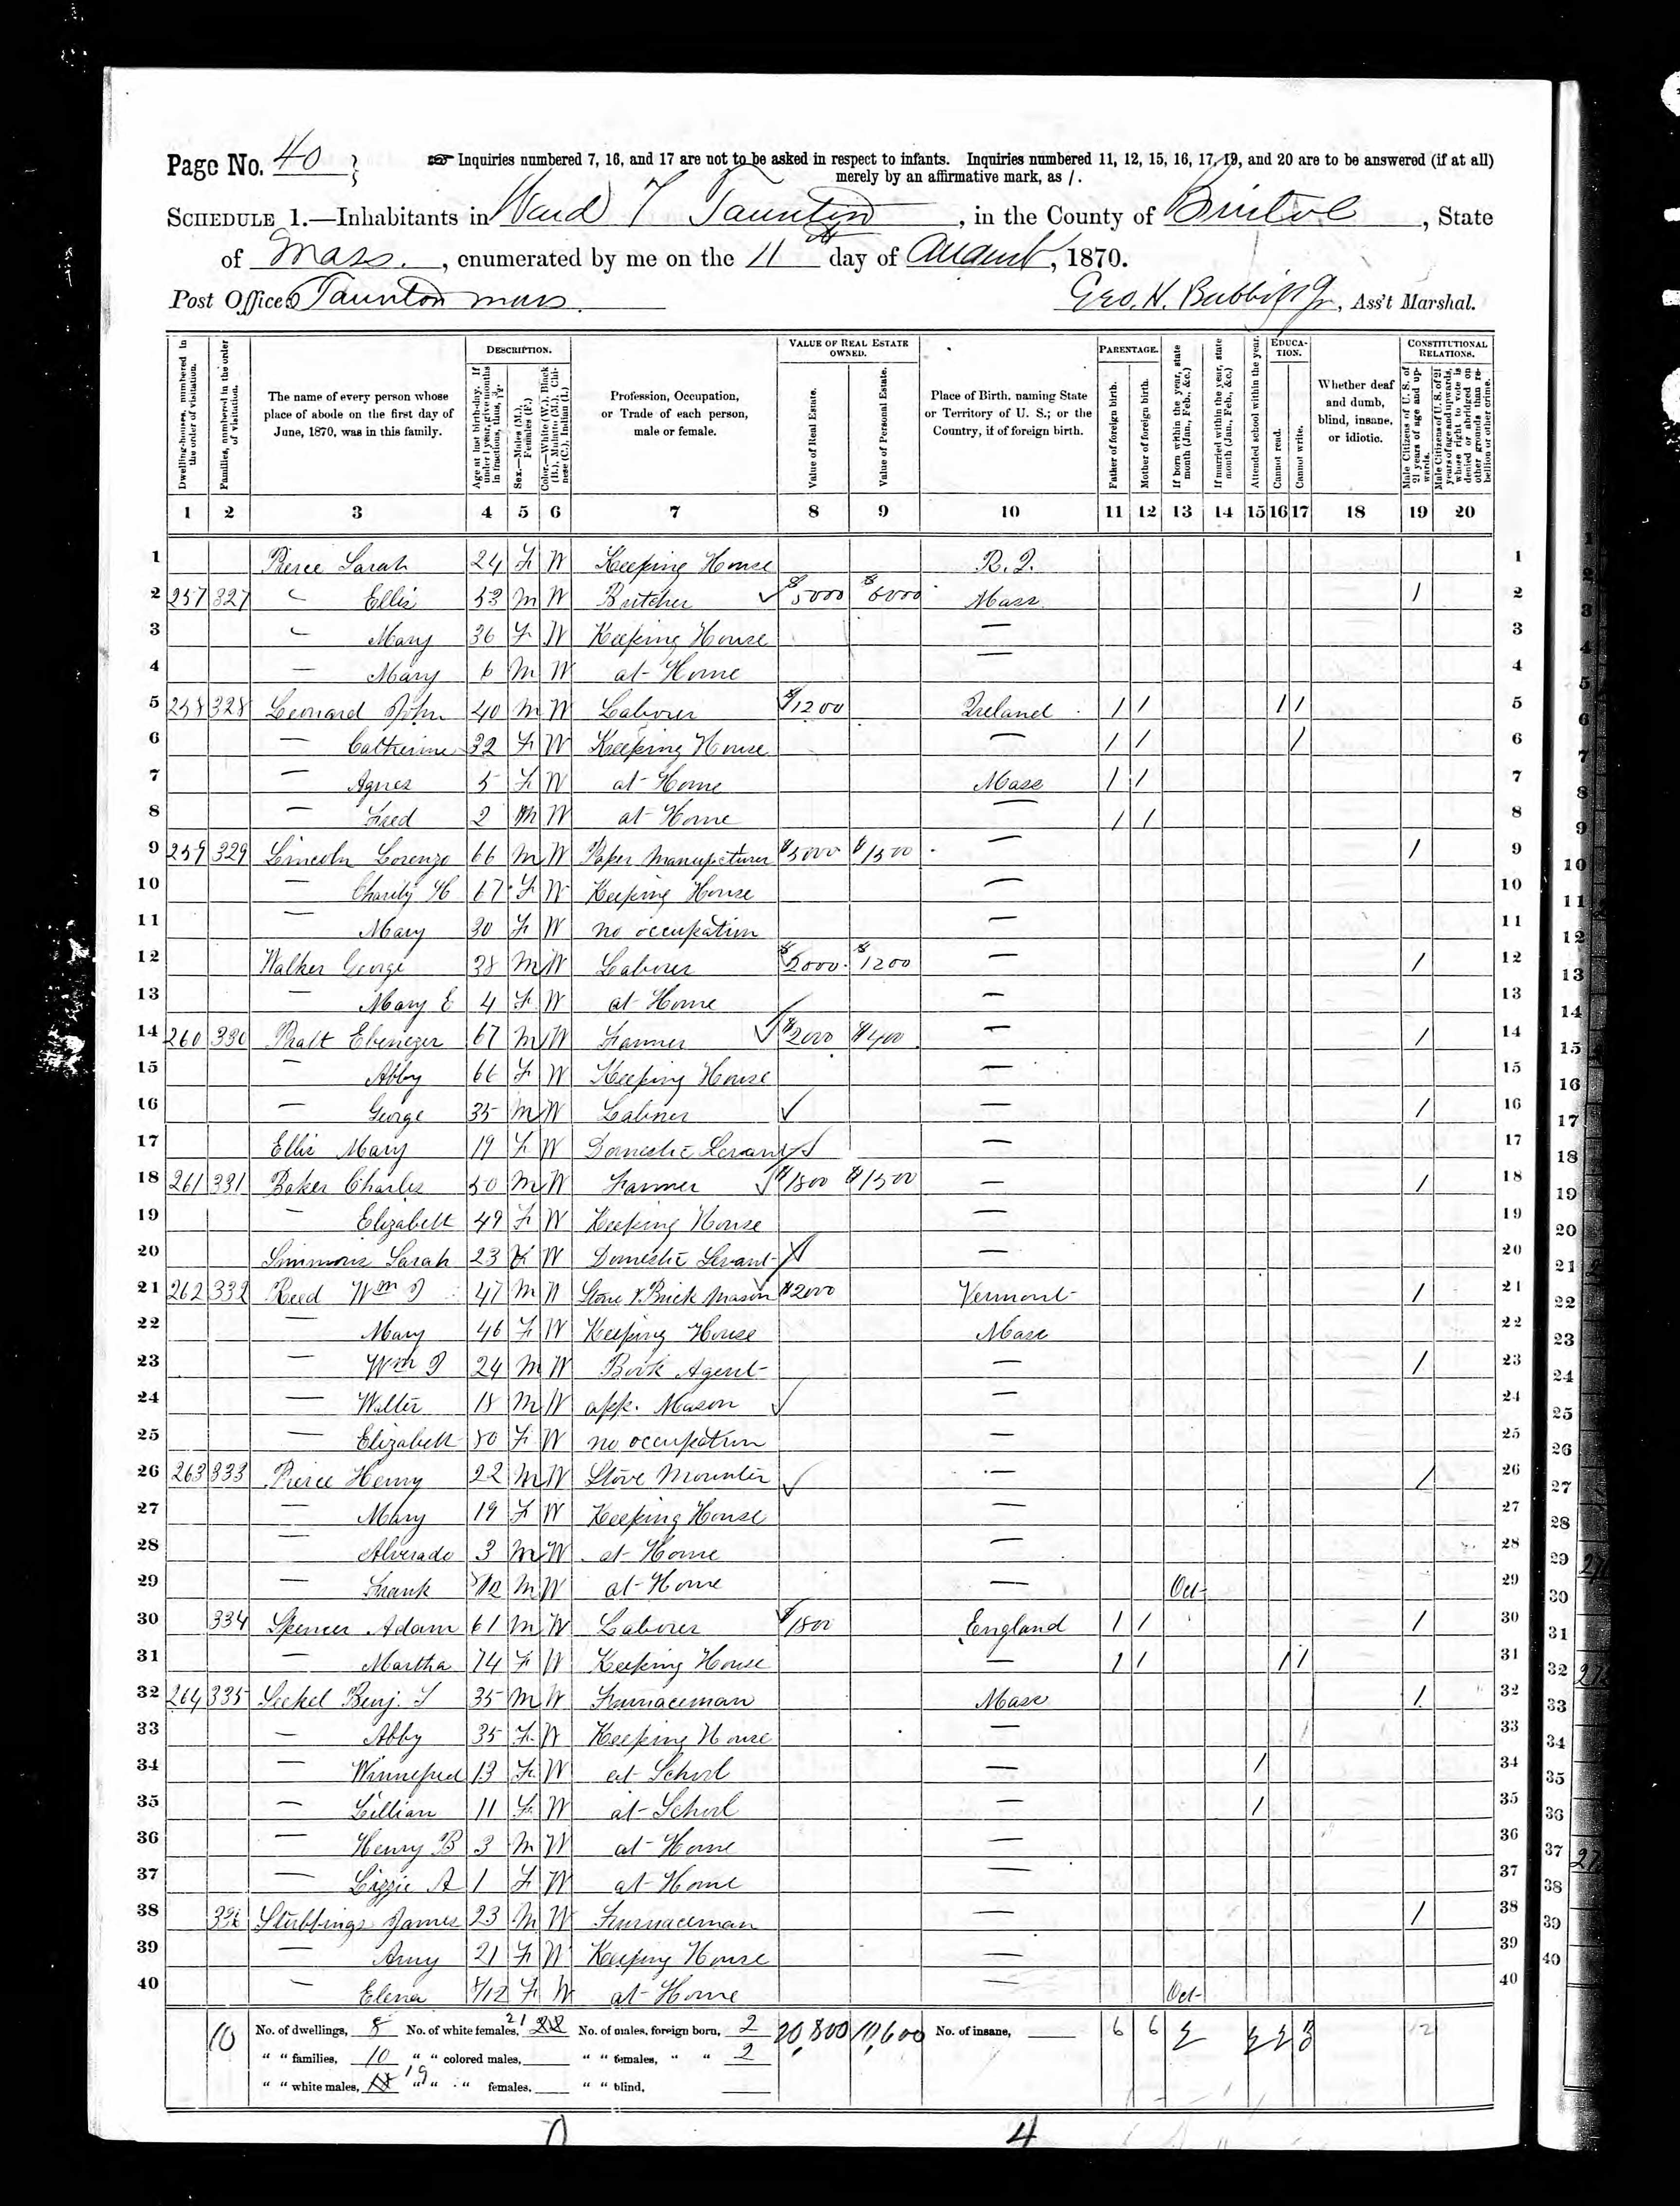 Page No. 40
Inquiries numbered 7, 16, and 17 are not to be asked in respect to infants. Inquiries numbered 11, 12, 15, 16, 17, 19, and 20 are to be answered (if at all)
merely by an affirmative mark, as /.
SCHEDULE 1.—Inhabitants in Ward 7 Taunton, in the County of Bristol, State
of Mass., enumerated by me on the 11th day of August, 1870.
Post Office: Taunton mass. Geo. H. Jr, Ass't Marshal.
Dwelling-houses, numbered in the order of visitation.
Families, numbered in the order of visitation.
The name of every person whose place of abode on the first day of June, 1870, was in this family.
DESCRIPTION.
Age at last birth-day. If under 1 year, give months in fractions, thus, 3/12.
Sex.—Males (M.), Females (F.)
Color.—White (W.), Black (B.), Mulatto (M.), Chinese (C.), Indian (I.)
Profession, Occupation, or Trade of each person, male or female.
VALUE OF REAL ESTATE OWNED.
Value of Real Estate.
Value of Personal Estate.
Place of Birth, naming State or Territory of U. S.; or the Country, if of foreign birth.
PARENTAGE.
Father of foreign birth.
Mother of foreign birth.
If born within the year, state month (Jan., Feb., &c.)
If married within the year, state month (Jan., Feb., &c.)
Attended school within the year.
EDUCATION.
Cannot read.
Cannot write.
Whether deaf and dumb, blind, insane, or idiotic.
CONSTITUTIONAL RELATIONS.
Male Citizens of U. S. of 21 years of age and upwards.
Male Citizens of U. S. of 21 years of age and upwards, whose right to vote is denied or abridged on other grounds than rebellion or other crime.
1 2 3 4 5 6 7 8 9 10 11 12 13 14 15 16 17 18 19 20
1 Pierce Sarah 24 F W Keeping House R. I. 1
2 257 327 " Ellis 53 M W Butcher $5000 $6000 Mass. / 2
3 " Mary 36 F W Keeping House — 3
4 — Mary 6 M W at Home — 4
5 258 328 Leonard John 40 M W Laborer $1200 Ireland / / / / 5
6 — Catherine 32 F W Keeping House — / / / 6
7 — Agnes 5 F W at Home Mass / / 7
8 — Fred 2 M W at Home — / / 8
9 259 329 Lincoln Lorenzo 66 M W Paper Manufacturer $5000 $1500 — / 9
10 — Charity H 67 F W Keeping House — 10
11 — Mary 30 F W no occupation — 11
12 Walker George 38 M W Laborer $2000 $1200 — / 12
13 — Mary E 4 F W at Home — 13
14 260 330 Pratt Ebenezer 67 M W Farmer $2000 $400 — / 14
15 — Abby 66 F W Keeping House — 15
16 — George 35 M W Laborer — / 16
17 Ellis Mary 19 F W Domestic Servant — 17
18 261 331 Baker Charles 50 M W Farmer $1800 $1500 — / 18
19 — Elizabeth 49 F W Keeping House — 19
20 Simmons Sarah 23 F W Domestic Servant — 20
21 262 332 Reed Wm I 47 M W Stone & Brick Mason $2000 Vermont / 21
22 — Mary 46 F W Keeping House Mass 22
23 — Wm I 24 M W Book Agent — / 23
24 — Walter 18 M W app. Mason — 24
25 — Elizabeth 80 F W no occupation — 25
26 263 333 Pierce Henry 22 M W Stove Mounter — / 26
27 — Mary 19 F W Keeping House — 27
28 — Alverado 3 M W at Home — 28
29 — Frank 8/12 M W at Home — Oct 29
30 334 Spencer Adam 61 M W Laborer $1800 England / / / 30
31 — Martha 74 F W Keeping House — / / / / 31
32 264 335 Seekel Benj. T 35 M W Furnaceman Mass / 32
33 — Abby 35 F W Keeping House — 33
34 — Winnefred 13 F W at School — / 34
35 — Lillian 11 F W at School — / 35
36 — Henry B 3 M W at Home — 36
37 — Lizzie A 1 F W at Home — 37
38 336 Stubbings James 23 M W Furnaceman — / 38
39 — Amy 21 F W Keeping House — 39
40 — Elena 8/12 F W at Home — Oct 40
10 No. of dwellings, 8 No. of white females, 21 No. of males, foreign born, 2 20,800 10,600 No. of insane, 6 6 2 2 2 3 12
" " families, 10 " " colored males, " " females, " " 2
" " white males, 19 " " " females, " " blind,
4